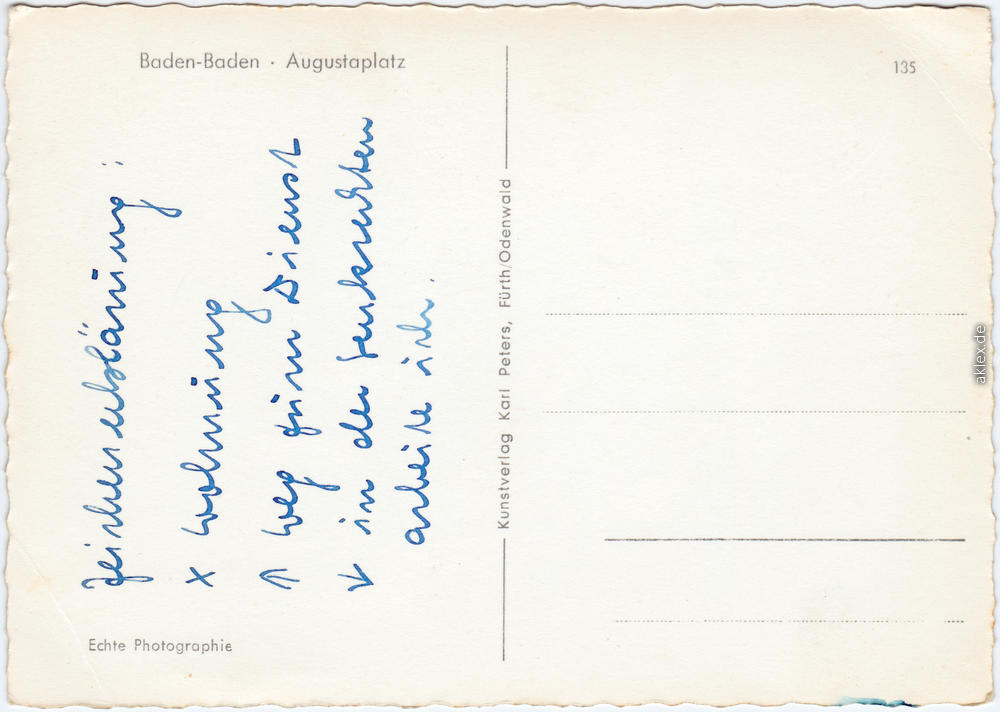 Baden-Baden · Augustaplatz
135
Zeichenerklärung:
x Wohnung
↑ Weg zum Dienst
↓ in der Senkrechten
arbeite ich.
Kunstverlag Karl Peters, Fürth/Odenwald
Echte Photographie
aklex.de